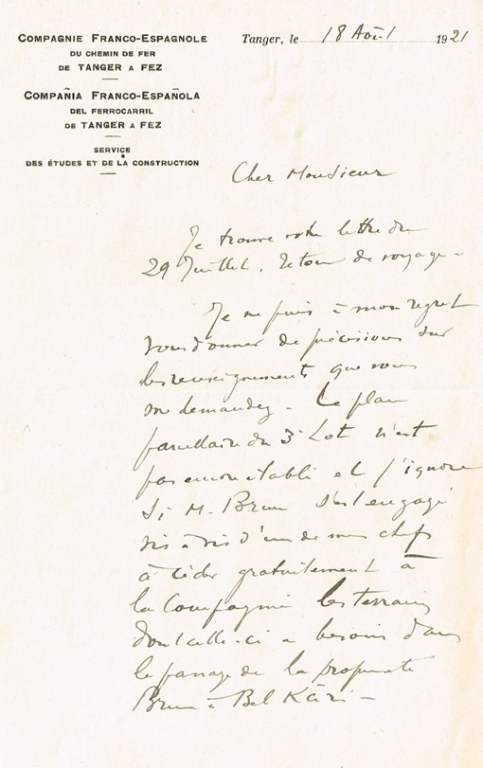 COMPAGNIE FRANCO-ESPAGNOLE
DU CHEMIN DE FER
DE TANGER A FEZ
COMPAÑIA FRANCO-ESPAÑOLA
DEL FERROCARRIL
DE TANGER A FEZ
SERVICE
DES ÉTUDES ET DE LA CONSTRUCTION
Tanger, le 18 Août 1921
Cher Monsieur
Je trouve votre lettre du
29 Juillet, retour de voyage -
Je ne puis à mon regret
vous donner de précisions sur
les renseignements que vous
me demandez - Le plan
parcellaire du 3e Lot n'est
pas encore établi et j'ignore
si M. Brun s'est engagé
vis à vis d'un de mes chefs
à céder gratuitement à
la Compagnie les terrains
dont celle-ci a besoin dans
le passage de la propriété
Brun à Bel